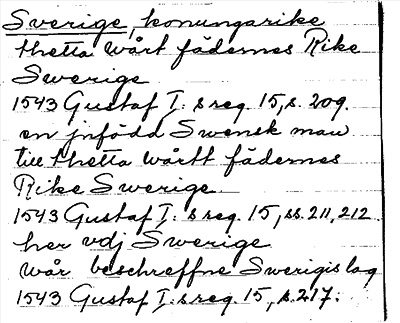 Sverige, konungarike
thetta wårt fädernes Rike
Swerige
1543 Gustaf I: s reg. 15, s. 209.
en jnfödd Swensk man
till thetta wårtt fädernes
Rike Swerige
1543 Gustaf I: s reg. 15, ss. 211, 212
her vdj Swerige
wår beschreffne Swerigis lag
1543 Gustaf I: s reg. 15, s. 217.